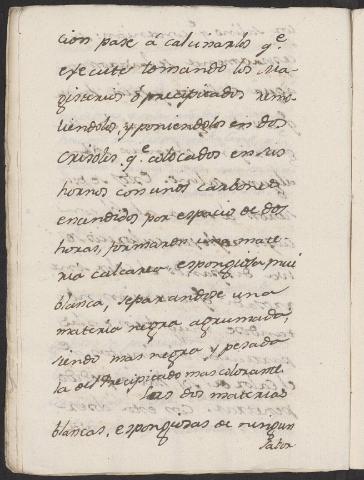 cion pase á calcinarlos q.e
execute tomando los Ma-
gisterios ó precipitados remo-
liendolos, y poniendolos en dos
Crisoles q.e colocados en sus
hornos con unos carbones
encendidos por espacio de dos
horas, formaron una mate-
ria calcarea esponjosa mui
blanca, separandose una
materia negra agrumada,
siendo mas negra y pesada
la del Precipitado mas colorante
Las dos materias
blancas, esponjosas de ningun
sabor